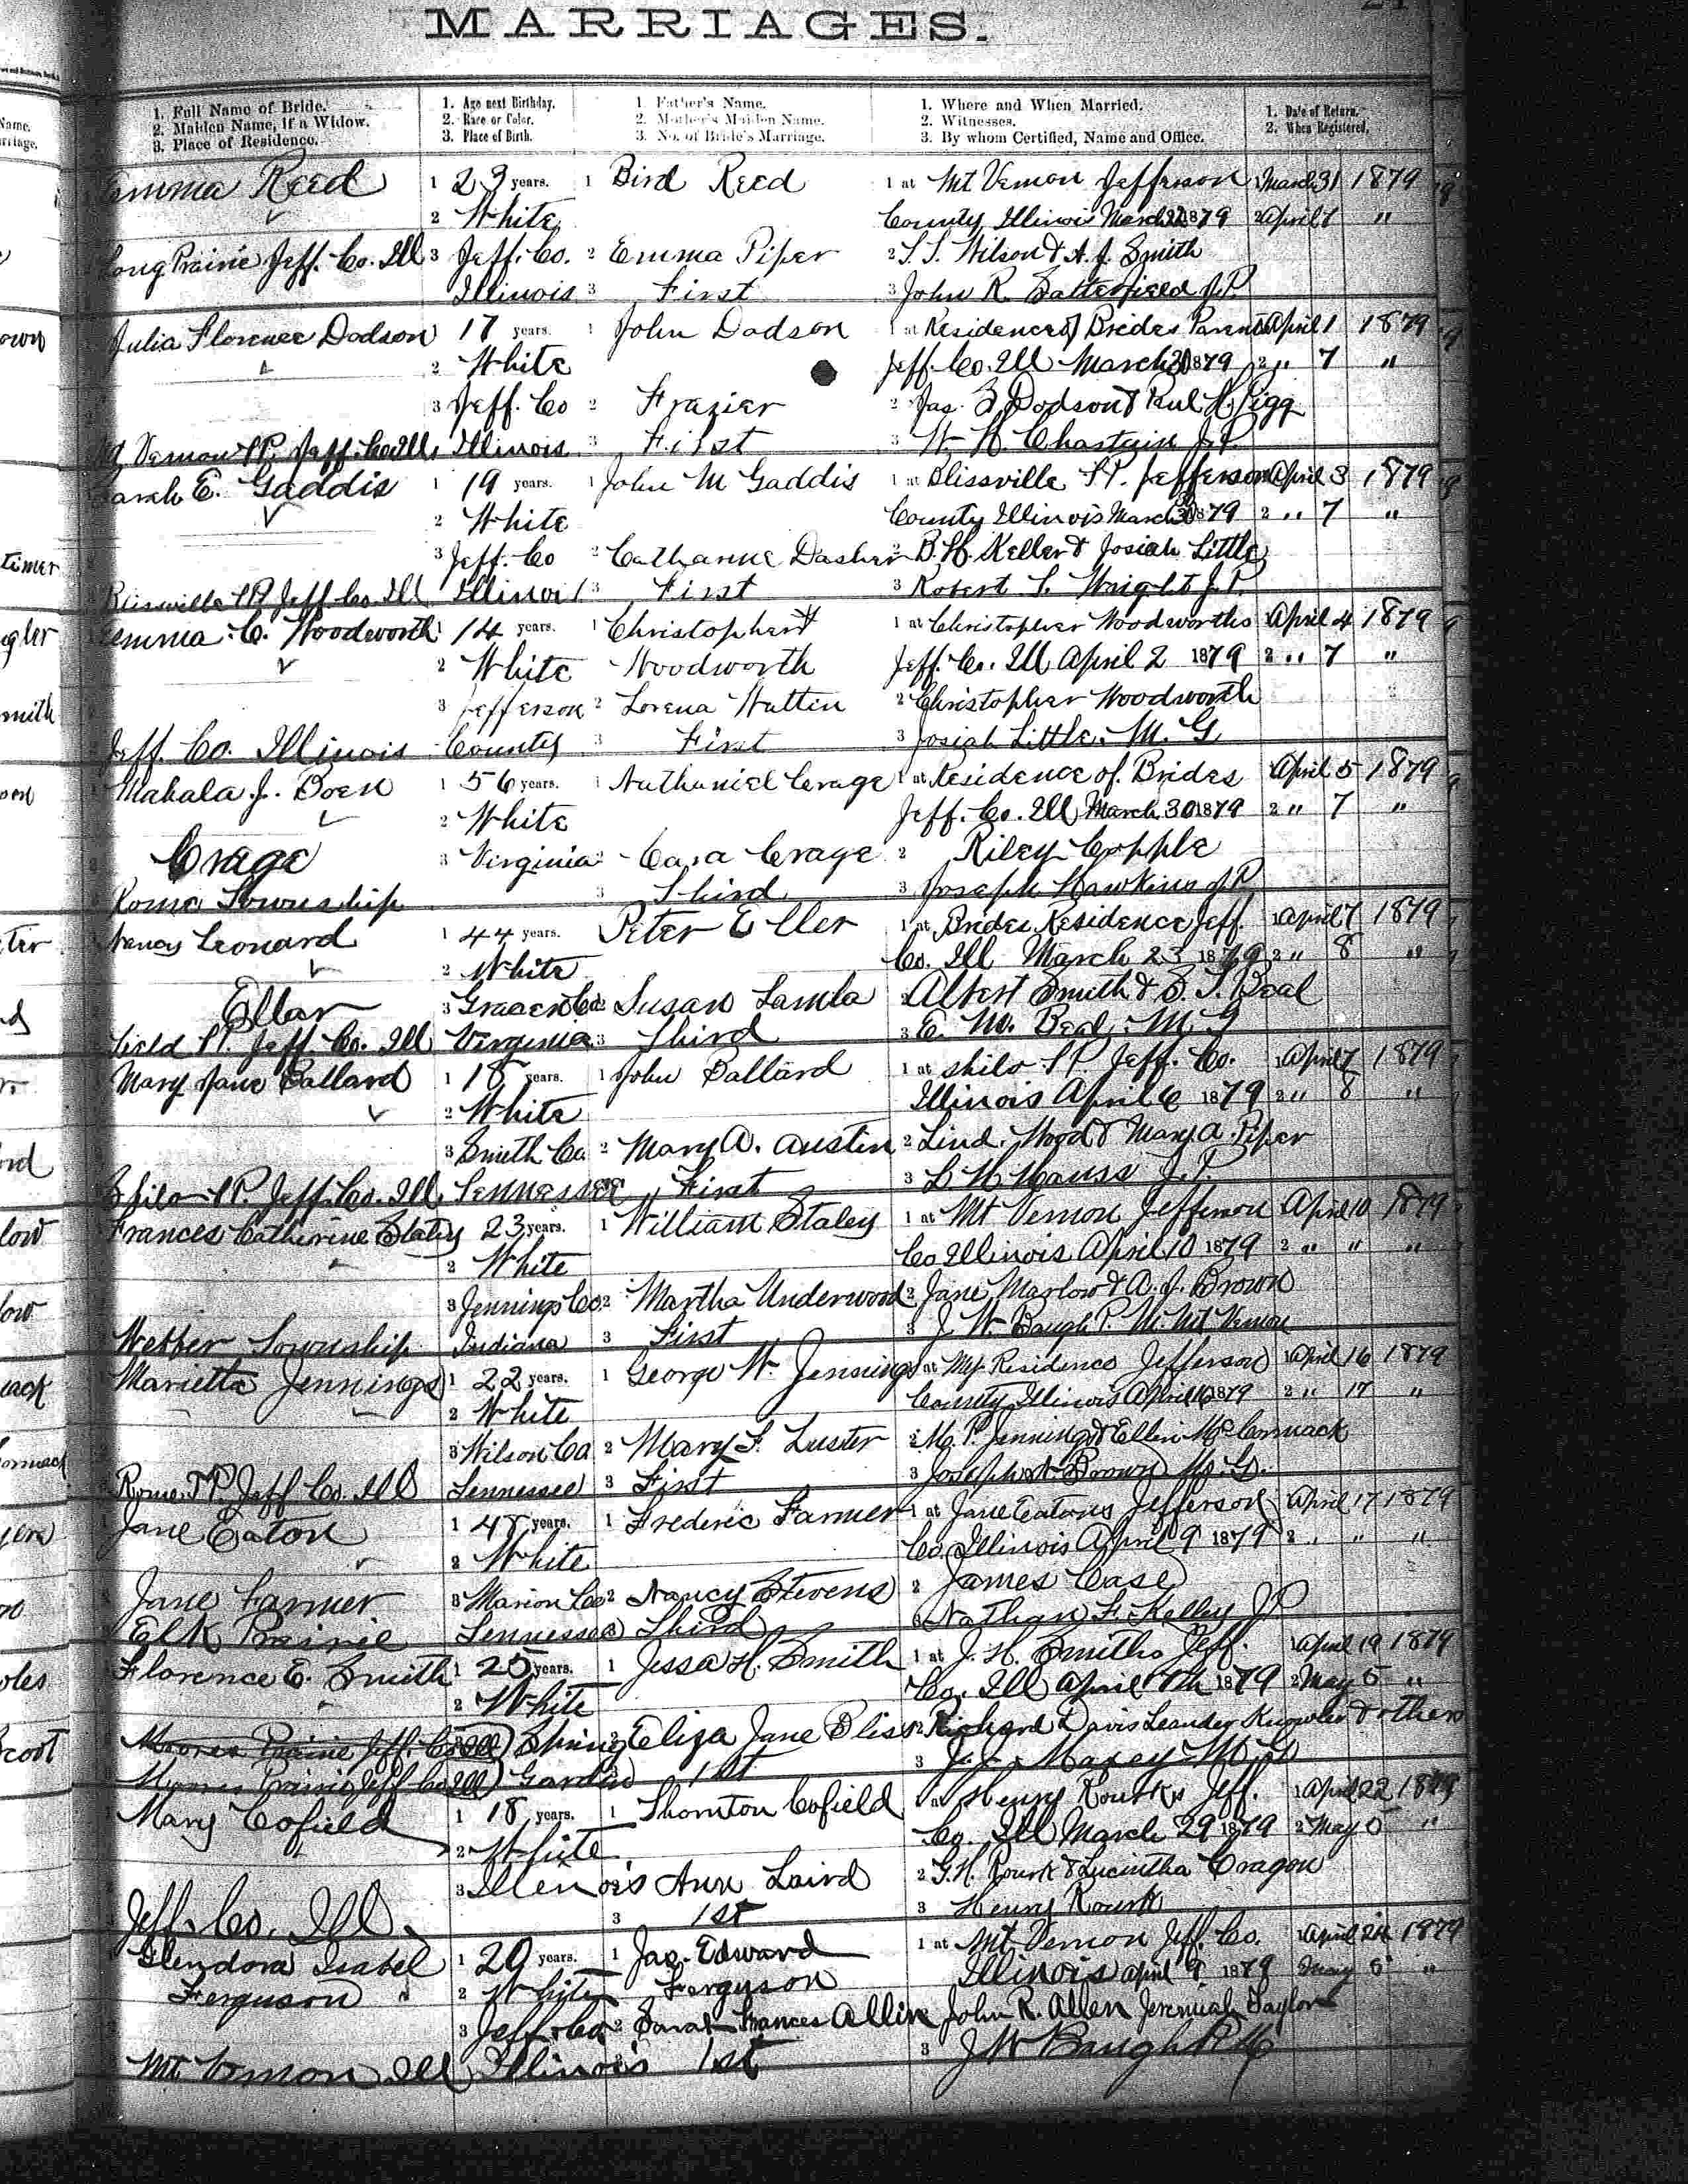 MARRIAGES.
1. Full Name of Bride.
2. Maiden Name, if a Widow.
3. Place of Residence.
1. Age next Birthday.
2. Race or Color.
3. Place of Birth.
1. Father's Name.
2. Mother's Maiden Name.
3. No. of Bride's Marriage.
1. Where and When Married.
2. Witnesses.
3. By whom Certified, Name and Office.
1. Date of Return.
2. When Registered.
Emma Reed 1 23 years. 1 Bird Reed 1 at Mt Vernon Jefferson 1 March 31 1879
2 White County Illinois March 1879 2 April 1 "
Long Prairie Jeff. Co. Ill 3 Jeff. Co. 2 Emma Piper 2 S. T. Wilson & A. J. Smith
Illinois 3 First 3 John R. Satterfield J.P.
Julia Florence Dodson 17 years. 1 John Dodson 1 at Residence of Brides Parents April 1 1879
2 White Jeff. Co. Ill March 1879 2 " 7 "
3 Jeff. Co 2 Frazier 2 Jas. Dodson & Pigg
Mt Vernon T.P. Jeff. Co. Ills Illinois 3 First 3 W H Chastain J.P.
Sarah E. Gaddis 1 19 years. 1 John M Gaddis 1 at Blissville T.P. Jefferson April 3 1879
2 White County Illinois March 1879 2 " 7 "
3 Jeff. Co 2 Catharine Dasher 2 B. H. Keller & Josiah Little
Blissville T.P. Jeff Co. Ill Illinois 3 First 3 Robert S. Wright J.P.
Lemma C. Woodworth 1 14 years. 1 Christopher 1 at Christopher Woodworths April 4 1879
2 White Woodworth Jeff. Co. Ill April 2 1879 2 " 7 "
3 Jefferson 2 Lorena 2 Christopher Woodworth
Jeff. Co. Illinois County 3 First 3 Josiah Little. M. G
Mahala J. Boen 1 56 years. 1 Nathaniel Crage 1 at Residence of Brides April 5 1879
2 White Jeff. Co. Ill March 30 1879 2 " 7 "
Crage 3 Virginia 2 Crage 2 Riley Copple
Rome Township 3 Third 3 Joseph Hawkins J.P.
Nancy Leonard 1 44 years. Peter Eller 1 at Brides Residence Jeff. 1 April 7 1879
2 White Co. Ill March 23 1879 2 " 8 "
Ellar 3 Co 2 Susan Lamla 2 Albert Smith & S. T. Beal
Field T.P. Jeff Co. Ill Virginia 3 Third 3 E. M. Beal. M. G
Mary Jane Ballard 1 18 years. 1 John Ballard 1 at Shilo T.P. Jeff. Co. 1 April 7 1879
2 White Illinois April 6 1879 2 " 8 "
3 Smith Co 2 Mary A. Austin 2 Lind. Wood & Mary A. Piper
Shilo T.P. Jeff. Co. Ill Tennessee First 3 J.P.
Frances Catherine Staley 23 years. 1 William Staley 1 at Mt Vernon Jefferson April 10 1879
2 White Co Illinois April 10 1879 2 " " "
3 Jennings Co. 2 Martha Underwood 2 Jane Marlow & A. J. Brown
Webber Township Indiana 3 First 3 J. W. Baugh P. M. Mt Vernon
Marietta Jennings 1 22 years. 1 George W. Jennings 1 at My Residence Jefferson 1 April 16 1879
2 White County Illinois April 1879 2 " 17 "
3 Wilson Co 2 Mary F. Luster 2 M. P. Jennings & Ellen McCormack
Rome T.P. Jeff Co. Ill Tennessee 3 First 3 Joseph Brown M. G.
Jane Eaton 1 48 years. 1 Frederic Farmer 1 at Jane Eatons Jefferson April 17 1879
2 White Co. Illinois April 9 1879 2 " " "
Jane Farmer 3 Marion Co 2 Nancy Stevens 2 James Case
Elk Prairie Tennessee 3 Third 3 Nathan F. Kelley JP
Florence E. Smith 1 25 years. 1 Jessa H. Smith 1 at J. H. Smiths Jeff. 1 April 19 1879
2 White Co. Ill April 1879 2 May 5 "
Moores Prairie Jeff. Co Ill Spring 2 Eliza Jane Bliss 2 Richard Davis Leander Knowles & others
Moores Prairie Jeff Co Ill Garden 1st 3 J. J. Maxey M. G
Mary Cofield 1 18 years. 1 Thornton Cofield 1 at Henry Rourks Jeff. 1 April 22 1879
2 White Co. Ill March 29 1879 2 May 5 "
3 Illenois Ann Laird 2 G. H. Rourk & Lucintha Cragon
Jeff. Co. Ill. 3 1st 3 Henry Rourk
Glendora Isabel 1 20 years. 1 Jas. Edward 1 at Mt Vernon Jeff. Co. 1 April 24 1879
Ferguson 2 White Ferguson Illinois April 9 1879 May 5 "
3 Jeff. Co. 2 Sarah Frances Allin John R. Allen Jeremiah Taylor
Mt Vernon Ill Illinois 1st 3 J W Baugh P M